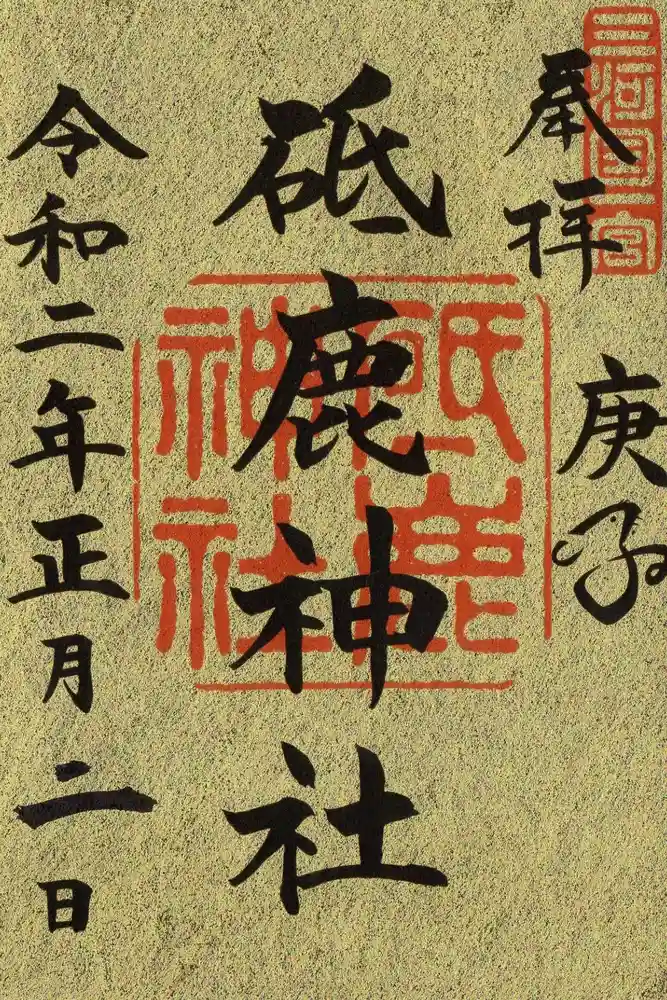 三河國一宮
奉拝
庚子
砥鹿神社
砥鹿神社
令和二年正月二日